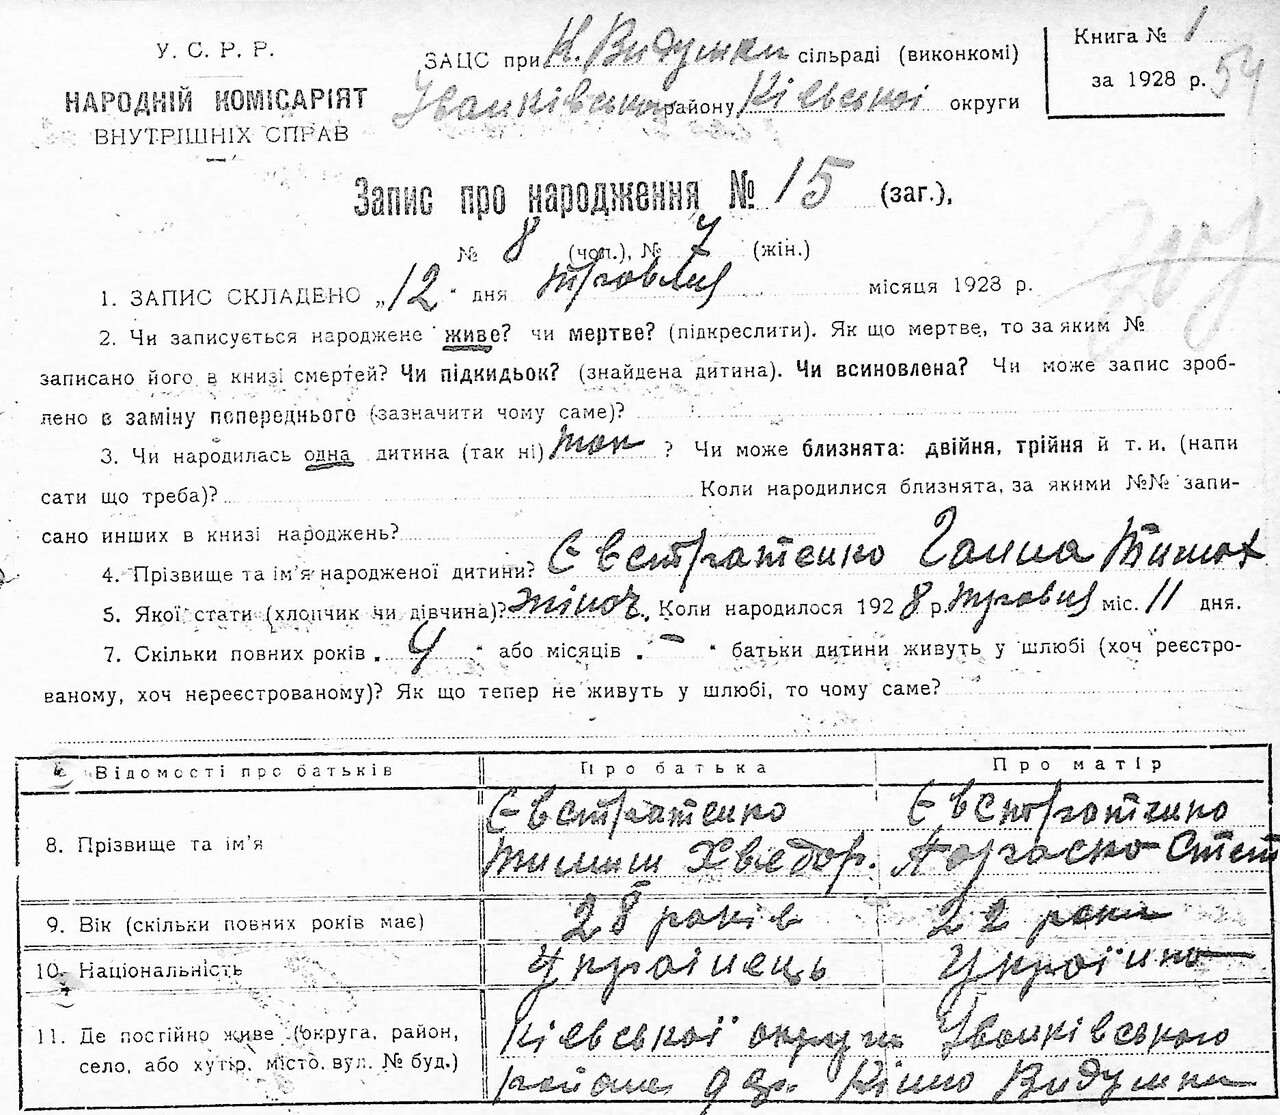 У. С. Р. Р.
НАРОДНІЙ КОМІСАРІЯТ
ВНУТРІШНІХ СПРАВ
ЗАЦС при К. Видумки сільраді (виконкомі)
Іванківського району Кіевської округи
Книга № 1
за 1928 р. 54
Запис про народження № 15 (заг.),
№ 8 (чол.), № 7 (жін.)
1. ЗАПИС СКЛАДЕНО „12" дня травня місяця 1928 р.
2. Чи записується народжене живе? чи мертве? (підкреслити). Як що мертве, то за яким №
записано його в книзі смертей? Чи підкидьок? (знайдена дитина). Чи всиновлена? Чи може запис зроб-
лено в заміну попереднього (зазначити чому саме)?
3. Чи народилась одна дитина (так ні) так ? Чи може близнята: двійня, трійня й т. и. (напи
сати що треба)? Коли народилися близнята, за якими №№ запи-
сано инших в книзі народжень?
4. Прізвище та ім'я народженої дитини? Євстратенко Ганна Тимох
5. Якої стати (хлопчик чи дівчина)? жіноч. Коли народилося 1928 р. травня міс. 11 дня.
7. Скільки повних років „ 4 " або місяців „ — " батьки дитини живуть у шлюбі (хоч реєстро-
ваному, хоч нереєстрованому)? Як що тепер не живуть у шлюбі, то чому саме?
Відомості про батьків Про батька Про матір
8. Прізвище та ім'я Євстратенко Тимиш Хведор. Євстратенко Степ
9. Вік (скільки повних років має) 28 років 22 роки
10. Національність Українець Українка
11. Де постійно живе (округа, район, Кіевської округи Іванківського
село, або хутір, місто, вул. № буд.) району Видумка